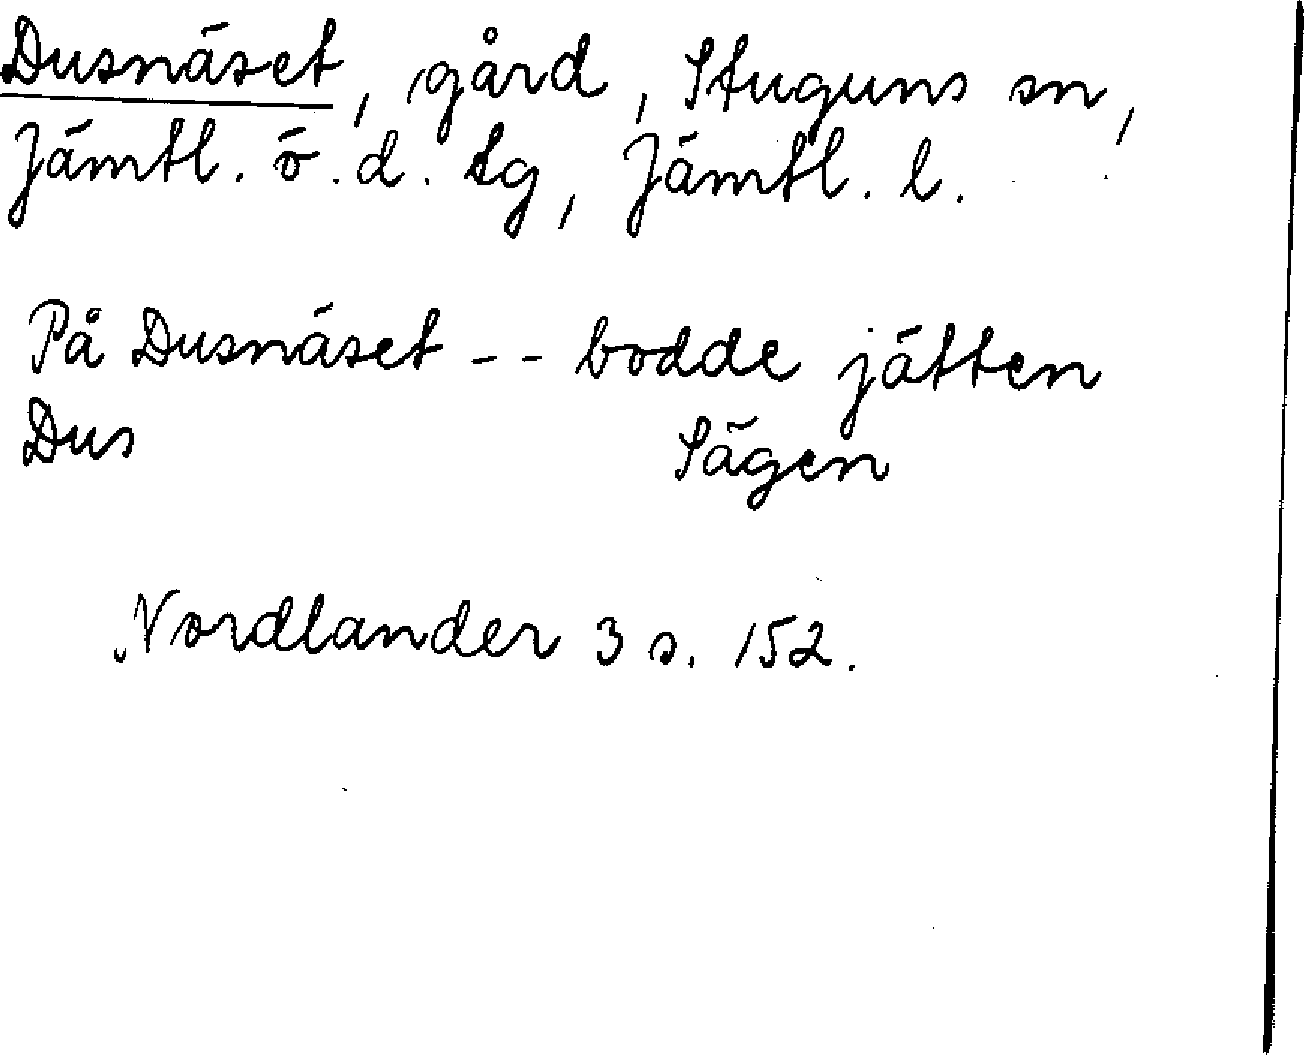 Dusnäset, gård, Stuguns sn,
Jämtl. ö. d. tg, Jämtl. l.
På Dusnäset -- bodde jätten
Dus Sägen
Nordlander 3 s. 152.